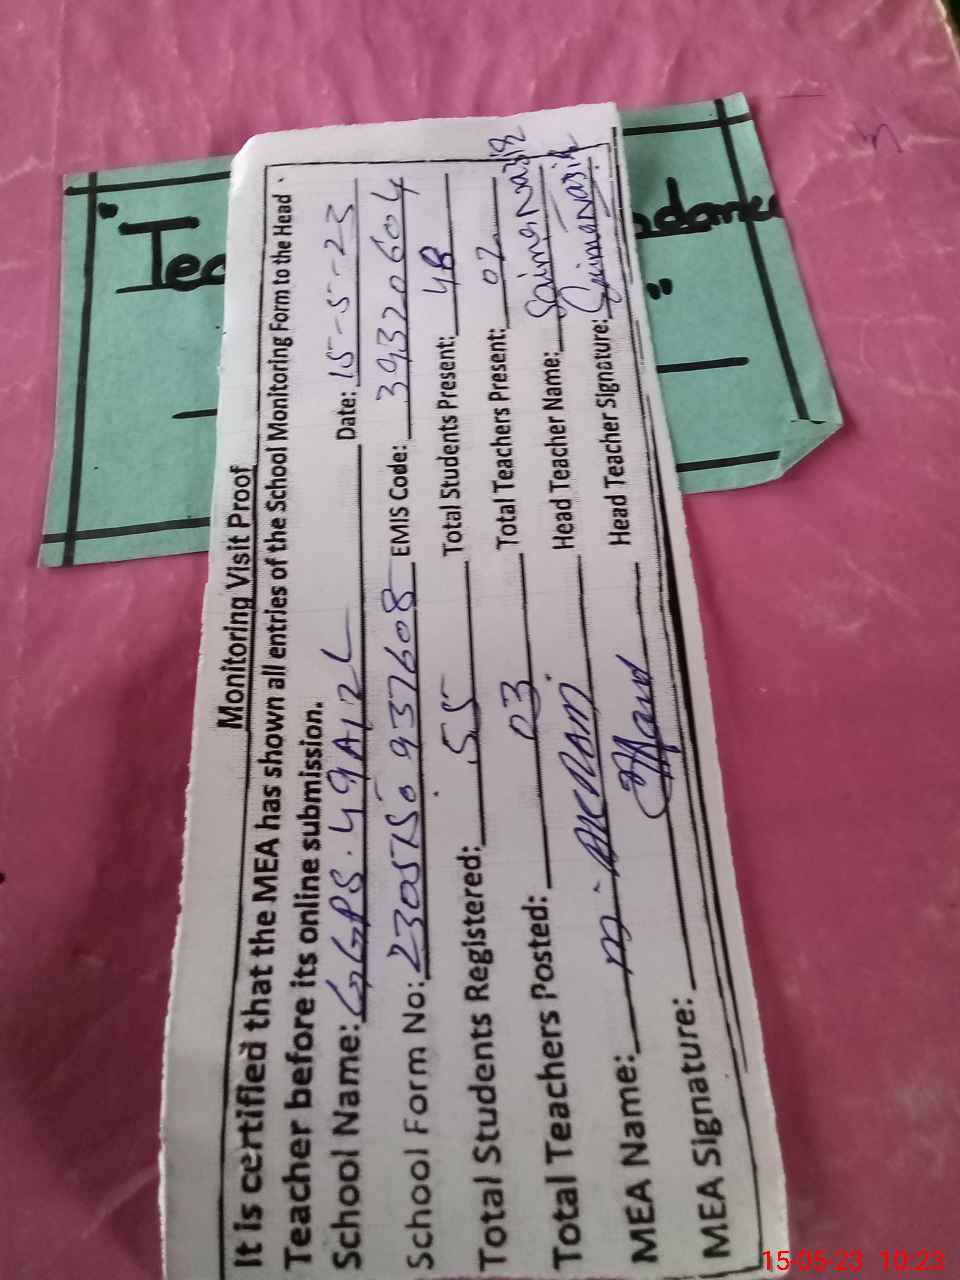 Monitoring Visit Proof
It is certified that the MEA has shown all entries of the School Monitoring Form to the Head
Teacher before its online submission.
School Name: GGPS. 49A/2L Date: 15-5-23
School Form No: 2305150937608 EMIS Code: 39320604
Total Students Registered: 55 Total Students Present: 48
Total Teachers Posted: 03 Total Teachers Present: 02
MEA Name: M. AKRAM Head Teacher Name: Saima Nazir
MEA Signature: Head Teacher Signature: Saima Nazir
"Tea
dance
"
15-05-23 10:23